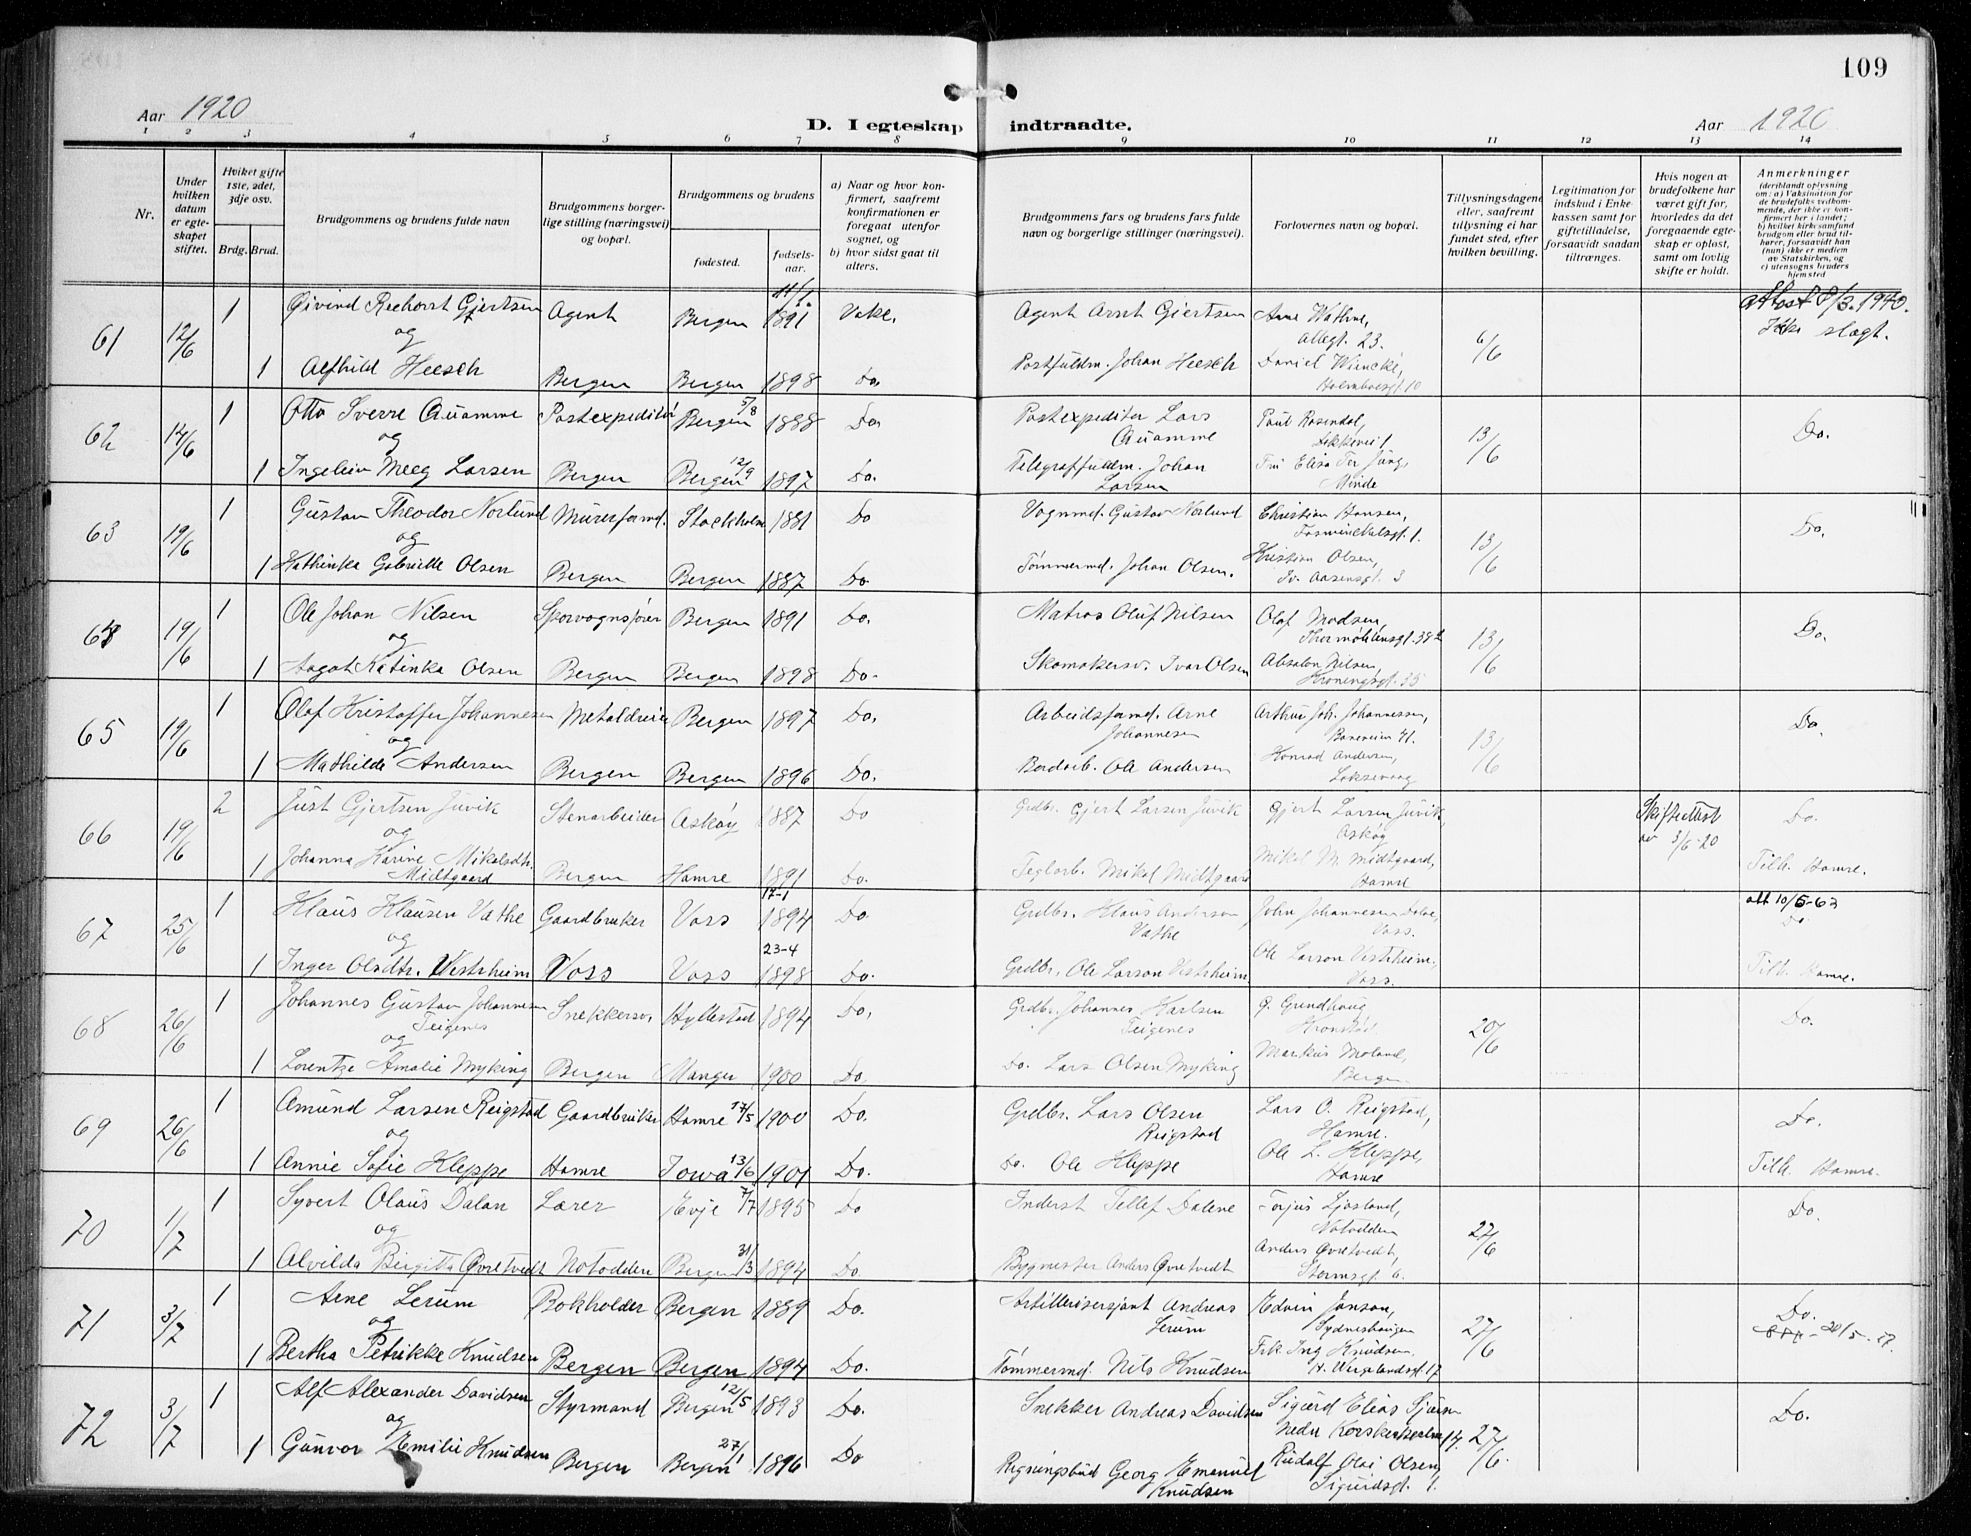 109
Aar 1920
D. I egteskap indtraadte.
Aar 1920
1 2 3 4 5 6 7 8 9 10 11 12 13 14
Nr.
Under hvilken datum er egteskapet stiftet.
Hvilket gifte 1ste, 2det, 3dje osv.
Brdg. Brud.
Brudgommens og brudens fulde navn
Brudgommens borgerlige stilling (næringsvei) og bopæl.
Brudgommens og brudens
fødested.
fødselsaar.
a) Naar og hvor konfirmert, saafremt konfirmationen er foregaat utenfor sognet, og
b) hvor sidst gaat til alters.
Brudgommens fars og brudens fars fulde navn og borgerlige stillinger (næringsvei).
Forlovernes navn og bopæl.
Tillysningsdagene eller, saafremt tillysning ei har fundet sted, efter hvilken bevilling.
Legitimation for indskud i Enkekassen samt for giftetilladelse, forsaavidt saadan tiltrænges.
Hvis nogen av brudefolkene har været gift før, hvorledes da det foregaaende egteskap er opløst, samt om lovlig skifte er holdt.
Anmerkninger
(deriblandt oplysning om: a) Vaksination for de brudefolks vedkommende, der ikke er konfirmert her i landet; b) hvilket kirkesamfund brudgom eller brud tilhører, forsaavidt han (hun) ikke er medlem av Statskirken, og c) utensogns bruders hjemsted
61 12/6 1 Øivind Gjertsen Agent Bergen 11/1. 1891 Vake. Agent Arnt Gjertsen Arne Wathne, Allegt. 23. 6/6 attest 8/3.1940. Ikke slegt.
og
1 Alfhild Heesch Bergen Bergen 1898 Do. Postfuldm. Johan Heesch Daniel Wincke, Holmboesgt. 10
62 14/6 1 Otto Sverre Quamme Postexpeditør Bergen 5/8 1888 Do. Postexpeditør Lars Quamme Paul Rosendal, 13/6 Do.
og
1 Ingeleiv Meeg Larsen Bergen Bergen 12/9 1897 Do. Telegraffuldm. Johan Larsen Fru Elisa Ter Jung, Minde
63 19/6 1 Gustav Theodor Norlund Murerformd. Stockholm 1881 Do Vognmd. Gustav Norlund Christian Hansen, 13/6 Do.
og
1 Kathinka Gabrielle Olsen Bergen Bergen 1887 Do. Tømmermd. Johan Olsen. Kristian Olsen, Iv. Aasensgt. 3
64 19/6 1 Ole Johan Nilsen Sporvognsfører Bergen 1891 Do. Matros Oluf Nilsen Olaf Madsen, Thormøhlensgt. 38 13/6 Do.
og
1 Aagot Katinka Olsen Bergen Bergen 1898 Do. Skomakersv. Ivar Olsen Absalon Nilsen, Kroningsgt. 35
65 19/6 1 Olaf Kristoffer Johannesen Metaldreier Bergen 1897 Do. Arbeidsformd. Arne Johannesen Arthur Joh. Johannessen, 13/6 Do.
og
1 Mathilde Andersen Bergen Bergen 1896 Do. Bordarb. Ole Andersen Konrad Andersen, Laksevaag
66 19/6 2 Just Gjertsen Juvik Stenarbeider Askøy 1887 Do Grdbr. Gjert Larsen Juvik Gjert Larsen Juvik, Askøy Skifteattest av 3/6-20 Do.
og
1 Johanna Karine Mikalsdtr. Midtgaard Bergen Hamre 1891 Do. Teglarb. Mikal Midtgaard Mikal M. Midtgaard, Hamre Tilh. Hamre.
67 25/6 1 Klaus Klausen Vathe Gaardbruker Vors 17-1 1894 Do Grdbr. Klaus Anderson Vathe John Johannesen Vors. att 10/5-63 Do
og
1 Inger Olsdtr. Vestrheim Voss Vors 23-4 1898 Do. Grdbr. Ole Larson Vestrheim Ole Larson Vestrheim, Vors. Tilh. Hamre.
68 26/6 1 Johannes Gustav Johannesen Teigenes Snekkersv. Hyllestad 1894 Do. Grdbr. Johannes Karlsen Teigenes G. Grundhaug Kronstad 20/6 Do.
og
1 Lorentze Amalie Myking Bergen Manger 1900 Do. Do. Lars Olsen Myking Markus Moland, Bergen
69 26/6 1 Amund Larsen Reigstad Gaardbruker Hamre 17/5 1900 Do. Grdbr. Lars Olsen Reigstad Lars O. Reigstad, Hamre. Do.
og
1 Annie Sofie Kleppe Hamre Iowa 13/6 1901 Do. Do. Ole Kleppe Ole L. Kleppe, Hamre Tilh. Hamre.
70 1/7 1 Syvert Olaus Dalan Lærer Evje 7/7 1895 Do Inderst Tellef Dalene Torjus Ljosland, Notodden 27/6 Do.
og
1 Alvilda Birgitta Øvretvedt Notodden Bergen 31/3 1894 Do. Bygmester Anders Øvretvedt Anders Øvretvedt, Stormsgt. 6.
71 3/7 1 Arne Lerum Bokholder Bergen 1889 Do. Artillerisersjant Andreas Lerum Edvin Janson, Sydneshaugen 27/6 Do. 20/5-57.
og
1 Bertha Petrikke Knudsen Bergen Bergen 1894 Do. Tømmermd. Nils Knudsen Frk. Ing Knudsen. H. Wergelandsgt. 17
72 3/7 1 Alf Alexander Davidsen Styrmand Bergen 12/5 1893 Do. Snekker Andreas Davidsen Sigurd Elias Nedre Korskirke 14. 27/6. Do.
og
1 Gunvor Emilie Knudsen Bergen Bergen 27/1 1896 Do Rigningsbud Georg Emanuel Knudsen Rudolf Olai Olsen, Sigurdsgt. 1.